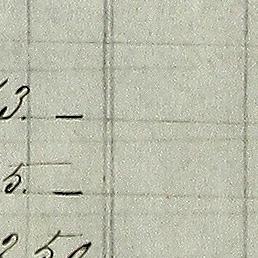 3. —
5. —
2 50